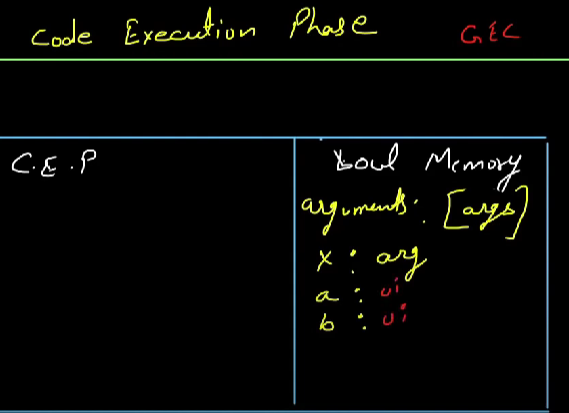 Code Execution Phase GEC
C.E.P
Local Memory
arguments: [args]
x : arg
a : ui
b : ui